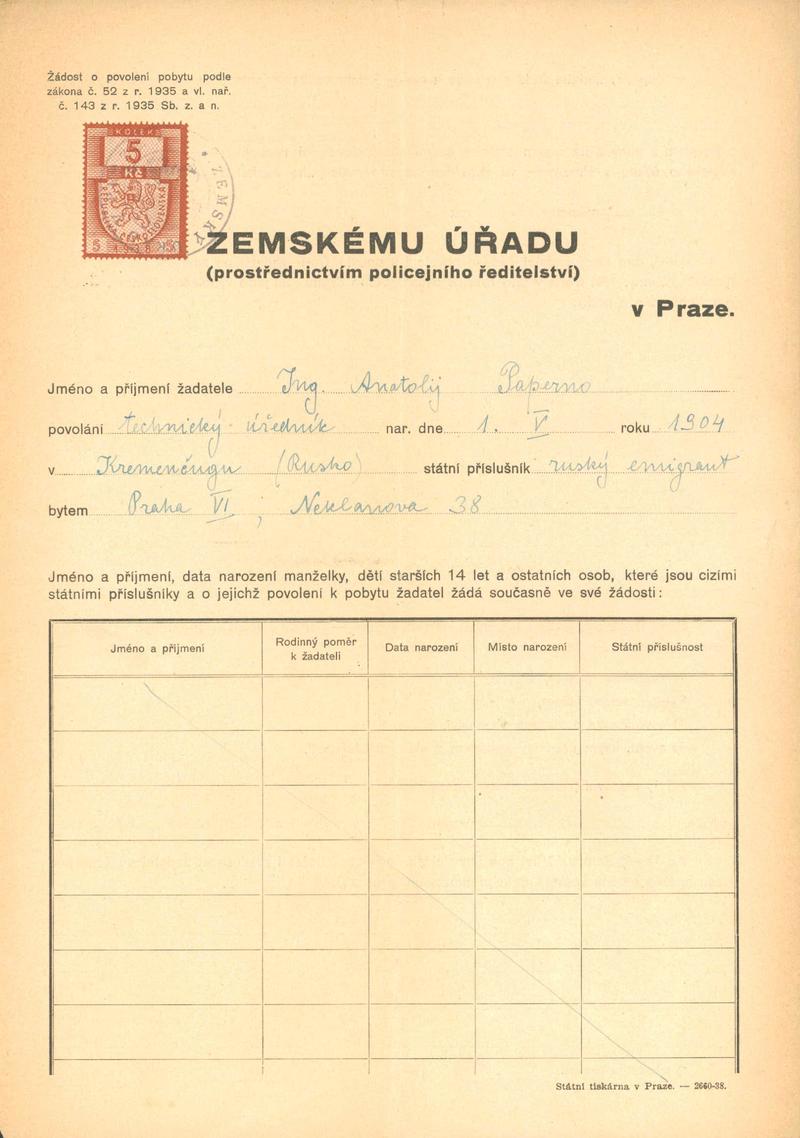 Žádost o povolení pobytu podle
zákona č. 52 z r. 1935 a vl. nař.
č. 143 z r. 1935 Sb. z. a n.
KOLEK
5
Kč
REPUBLIKA ČESKOSLOVENSKÁ
5 1938 5
ZEMSKÝ
ZEMSKÉMU ÚŘADU
(prostřednictvím policejního ředitelství)
v Praze.
Jméno a příjmení žadatele Ing. Anatolij Paperno
povolání technický úředník nar. dne 1. V. roku 1904
v Kremenčugu (Rusko) státní příslušník ruský emigrant
bytem Praha VI, Neklanova 38
Jméno a příjmení, data narození manželky, dětí starších 14 let a ostatních osob, které jsou cizími
státními příslušníky a o jejichž povolení k pobytu žadatel žádá současně ve své žádosti:
Jméno a příjmení Rodinný poměr k žadateli Data narození Místo narození Státní příslušnost
Státní tiskárna v Praze. — 2660-38.